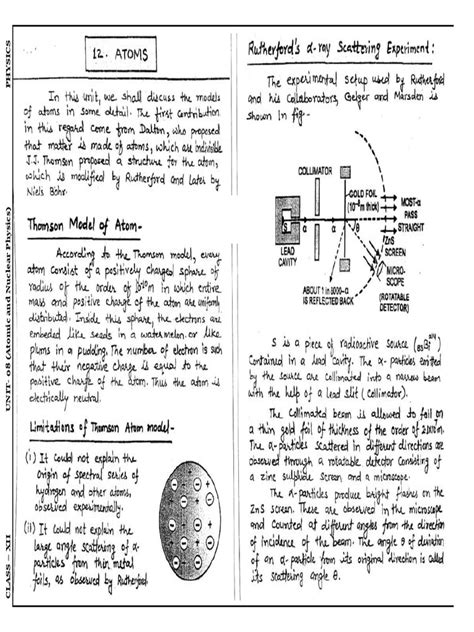 PHYSICS
UNIT- 08 (Atomic and Nuclear Physics)
CLASS – XII
12. ATOMS
In this unit, we shall discuss the models
of atoms in some detail. The first contribution
in this regard come from Dalton, who proposed
that matter is made of atoms, which are indivisible
J.J. Thomson proposed a structure for the atom,
which is modified by Rutherford and later by
Niels Bohr.
Thomson Model of Atom-
According to the Thomson model, every
atom consist of a positively charged sphare of
radius of the order of 10⁻¹⁰m in which entire
mass and positive charge of the atom are uniformly
distributed. Inside this sphare, the electrons are
embeded like seeds in a watermelon or like
plums in a pudding. The number of electron is such
that their negative charge is equal to the
positive charge of the atom. Thus the atom is
electrically neutral.
Limitations of Thomson Atom model-
(i) It Could not explain the
origin of spectral series of
hydrogen and other atoms,
observed experimentally.
(ii) It Could not explain the
large angle scattering of α-
particles from thin metal
foils, as observed by Rutherford
Rutherford's α-ray Scattering Experiment:
The experimental setup used by Rutherford
and his Collaborators, Geiger and Marsdon is
shown In fig--
COLLIMATOR
GOLD FOIL
(10⁻⁸m thick)
MOST-α
PASS
STRAIGHT
S
α
α
θ
LEAD
CAVITY
ZnS
SCREEN
MICRO-
SCOPE
(ROTATABLE
DETECTOR)
ABOUT 1 in 8000-α
IS REFLECTED BACK
S is a piece of radioactive source
Contained in a lead cavity. The α-particles emitted
by the source are collimated into a narrow beam
with the help of a lead slit (Collimator).
The Collimated beam is allowed to fall on
a thin gold foil of thickness of the order of
The α-particles scattered in different directions are
observed through a rotatable detector consisting of
a zinc sulphide screen and a microscope.
The α-particles produce bright flashes on the
ZnS screen. These are observed in the microscope
and Counted at different angles from the direction
of incidence of the beam. The angle θ of deviation
of an α-particle from its original direction is called
its scattering angle θ.